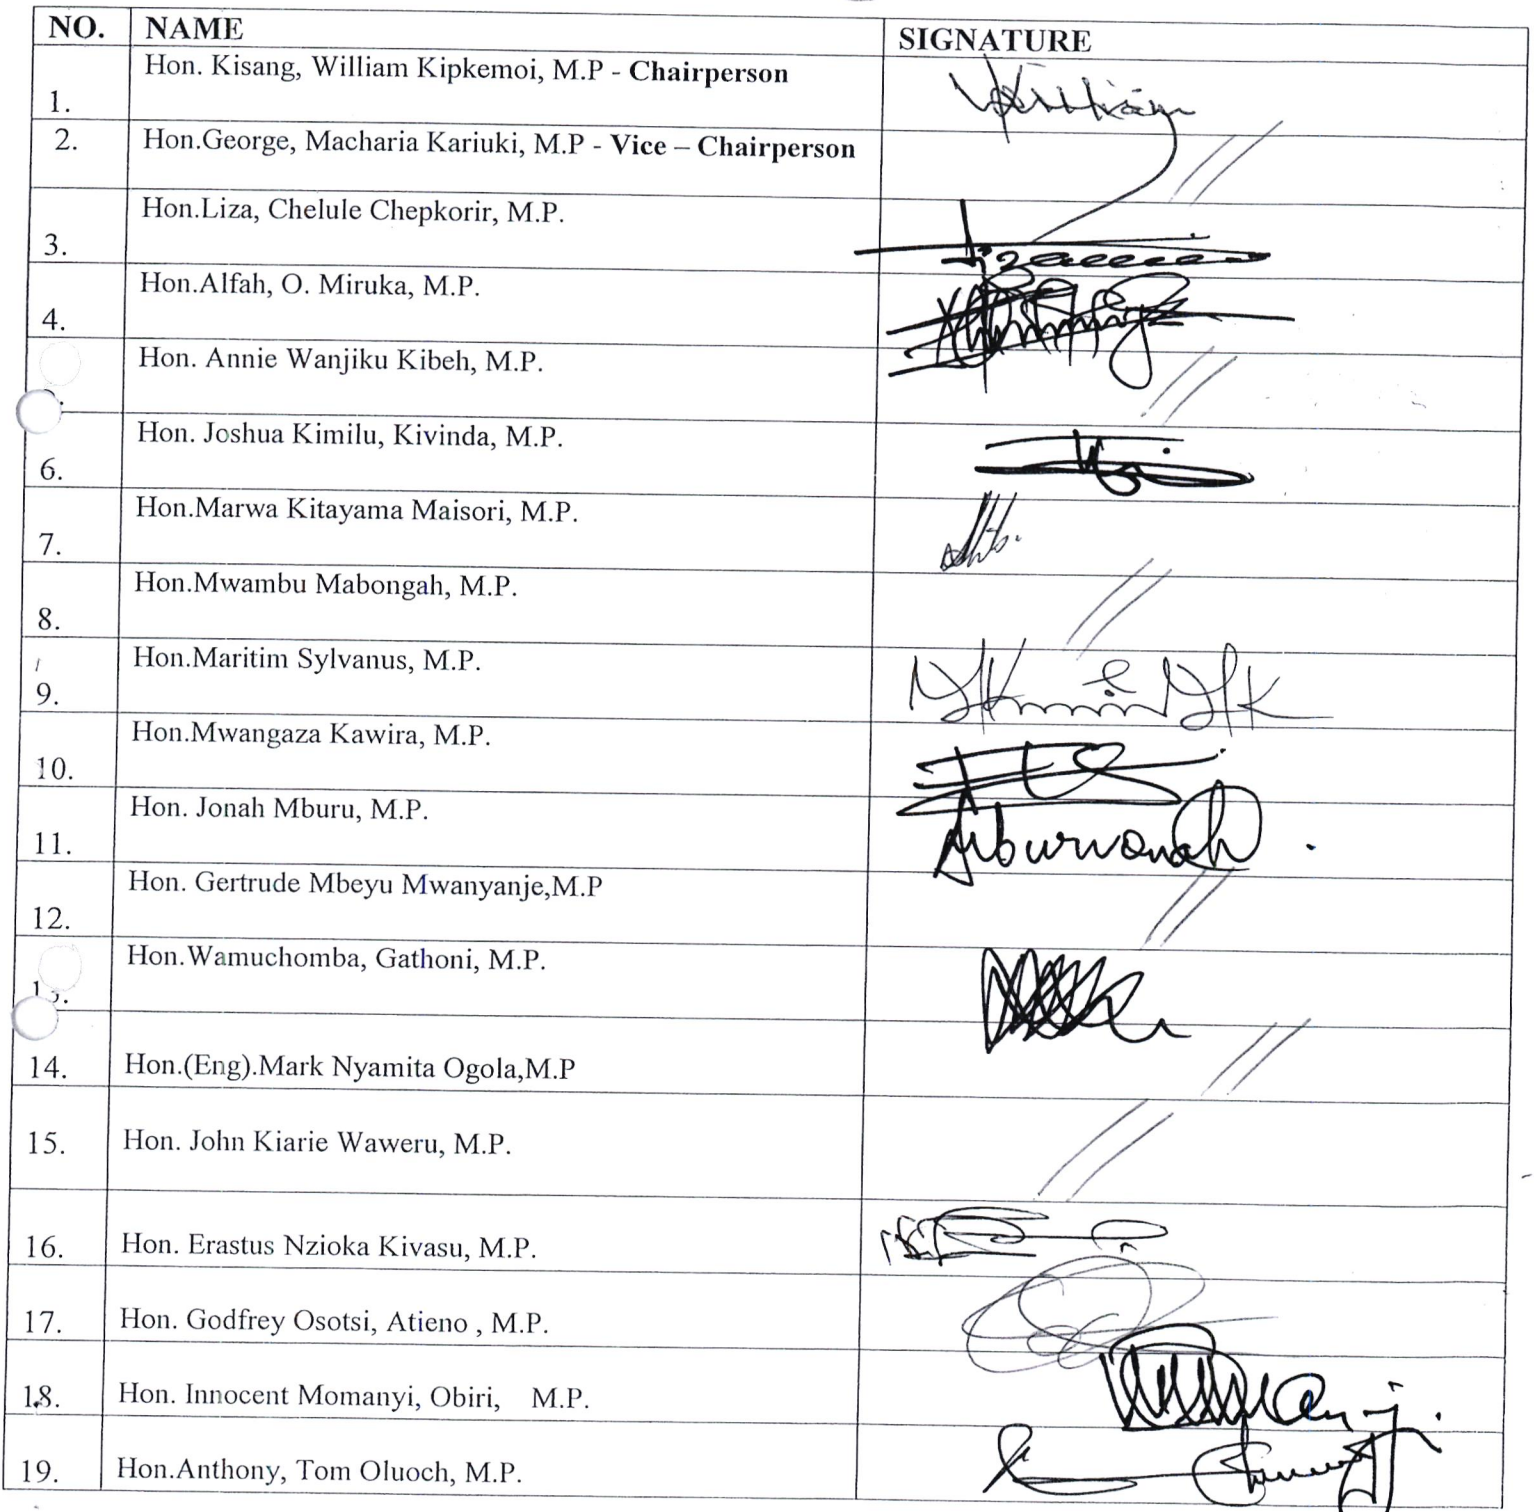 NO. NAME SIGNATURE
1. Hon. Kisang, William Kipkemoi, M.P - Chairperson
2. Hon.George, Macharia Kariuki, M.P - Vice – Chairperson
3. Hon.Liza, Chelule Chepkorir, M.P.
4. Hon.Alfah, O. Miruka, M.P.
Hon. Annie Wanjiku Kibeh, M.P.
6. Hon. Joshua Kimilu, Kivinda, M.P.
7. Hon.Marwa Kitayama Maisori, M.P.
8. Hon.Mwambu Mabongah, M.P.
9. Hon.Maritim Sylvanus, M.P.
10. Hon.Mwangaza Kawira, M.P.
11. Hon. Jonah Mburu, M.P.
12. Hon. Gertrude Mbeyu Mwanyanje,M.P
13. Hon.Wamuchomba, Gathoni, M.P.
14. Hon.(Eng).Mark Nyamita Ogola,M.P
15. Hon. John Kiarie Waweru, M.P.
16. Hon. Erastus Nzioka Kivasu, M.P.
17. Hon. Godfrey Osotsi, Atieno , M.P.
18. Hon. Innocent Momanyi, Obiri, M.P.
19. Hon.Anthony, Tom Oluoch, M.P.